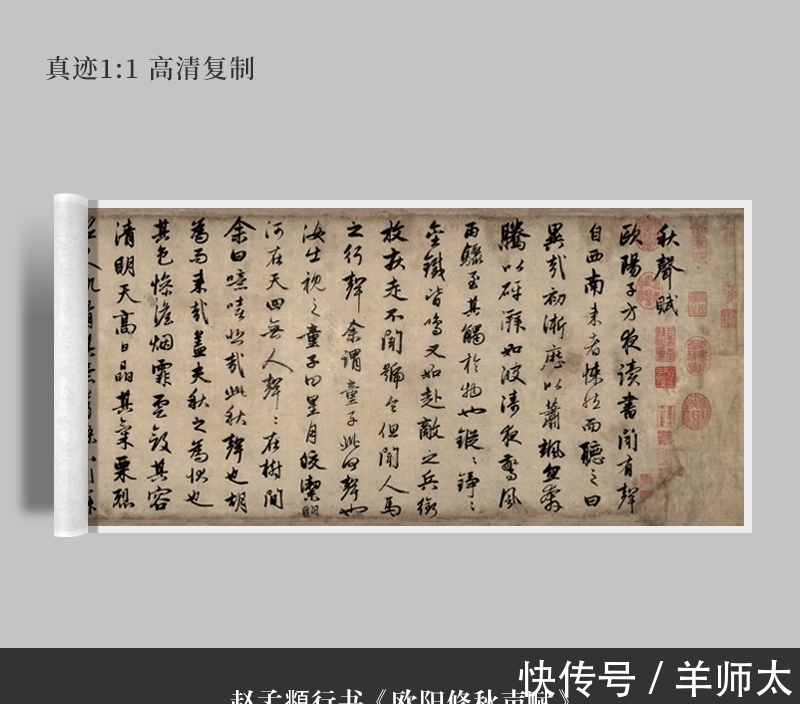 真迹1:1 高清复制
秋聲賦
歐陽子方夜读書聞有聲
自西南来者悚然而聽之曰
異哉初淅瀝以蕭颯忽奔
騰以砰湃如波濤夜驚風
雨驟至其觸於物也鏦〻錚〻
金鐵皆鳴又如赴敵之兵銜
枚疾走不聞號令但聞人馬
之行聲余謂童子此何聲也
汝出視之童子曰星月皎潔明
河在天四無人聲〻在樹間
余曰噫嘻悲哉此秋聲也胡
為而来哉蓋夫秋之為狀也
其色慘澹烟霏雲斂其容
清明天高日晶其氣栗烈
快传号 / 羊师太
赵孟頫行书《欧阳修秋声赋》